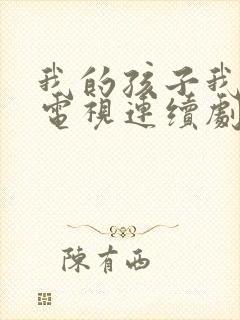 我的孩子我
電視連續劇
陳有西